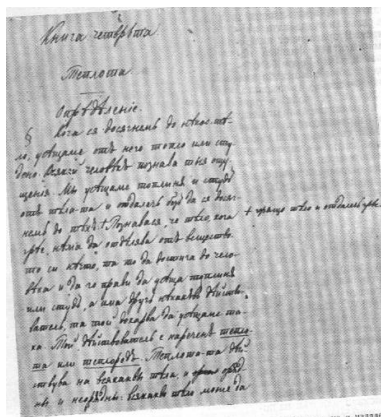 Книга четвърта.
Теплота.
Опрѣдѣленіе.
§ Кога ся досягнемъ до нѣкое тѣ-
ло, усѣщаме отъ него топло или сту-
дено. Всякой человѣкъ познава тыя ощу-
щенія. Мы усѣщаме топлина и студъ
отъ тѣла-та и отдалечь безъ да ся досяг-
немъ до тѣхъ + Познавася, че тѣло, кога
грѣе, нѣма да отдѣлява отъ вещество-
то си нѣчто, та то да достига до чело-
вѣка и да го прави да усѣща топлина
или студъ, а има другъ нѣкакъвъ дѣйстви-
ватель, та той докарва да усѣщаме та-
ка. Той дѣйствователь е нареченъ тепло-
та или теплородъ. Теплота-та дѣй-
ствува на всякакви тѣла,
ны и неорядны: всякакво тѣло може да
+ горящо тѣло и отдалечь грѣе.